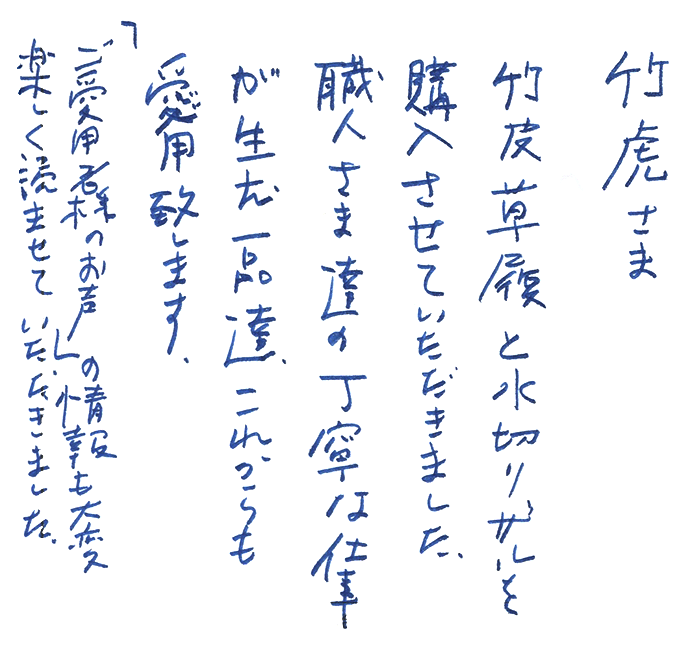 竹虎さま
竹皮草履と水切りザルを
購入させていただきました。
職人さま達の丁寧な仕事
が生む一品達、これからも
愛用致します。
「ご愛用者様のお声」の情報も大変
楽しく読ませていただきました。